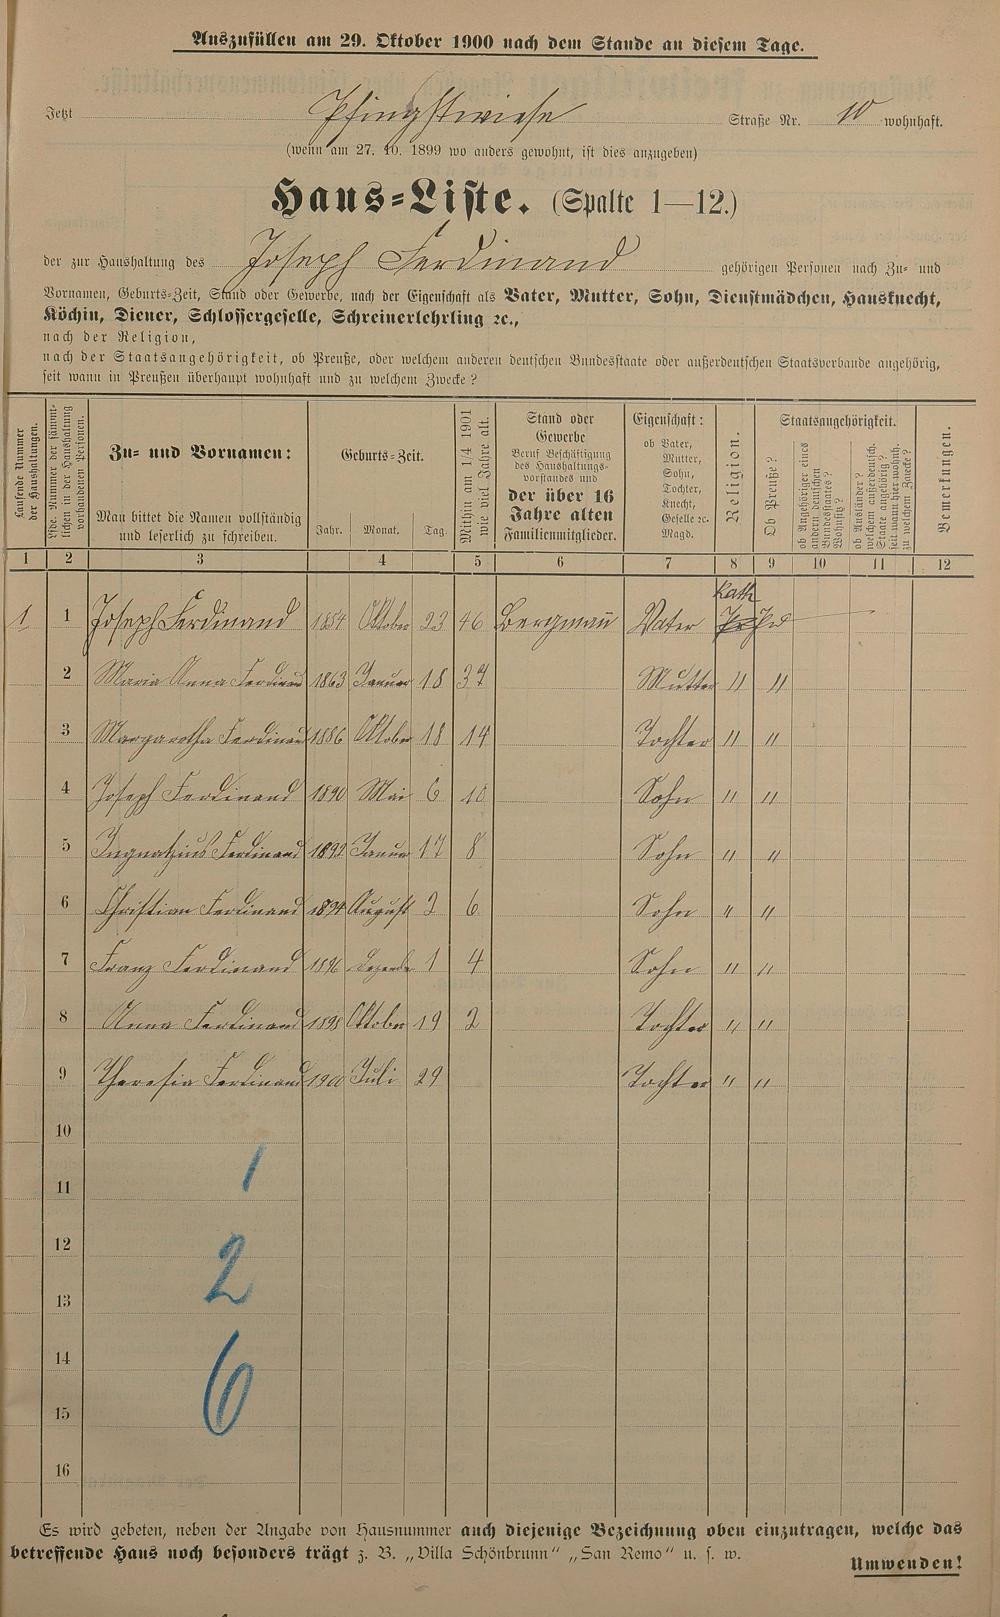 Auszufüllen am 29. Oktober 1900 nach dem Stande an diesem Tage.
Jetzt Pfingstwiese Straße Nr. 10 wohnhaft.
(wenn am 27. 10. 1899 wo anders gewohnt, ist dies anzugeben)
Haus-Liste. (Spalte 1—12.)
der zur Haushaltung des Joseph Ferdinand gehörigen Personen nach Zu- und
Vornamen, Geburts-Zeit, Stand oder Gewerbe, nach der Eigenschaft als Vater, Mutter, Sohn, Dienstmädchen, Hausknecht,
Köchin, Diener, Schlossergeselle, Schreinerlehrling ꝛc.,
nach der Religion,
nach der Staatsangehörigkeit, ob Preuße, oder welchem anderen deutschen Bundesstaate oder außerdeutschen Staatsverbande angehörig,
seit wann in Preußen überhaupt wohnhaft und zu welchem Zwecke?
Laufende Nummer
der Haushaltungen.
Lfde. Nummer der sämmt-
lichen in der Haushaltung
vorhandenen Personen.
Zu- und Vornamen:
Man bittet die Namen vollständig
und leserlich zu schreiben.
Geburts-Zeit.
Jahr. Monat. Tag.
Mithin am 1/4 1901
wie viel Jahre alt.
Stand oder
Gewerbe
Beruf Beschäftigung
des Haushaltungs-
vorstandes und
der über 16
Jahre alten
Familienmitglieder.
Eigenschaft:
ob Vater,
Mutter,
Sohn,
Tochter,
Knecht,
Geselle ꝛc.
Magd.
Religion.
Staatsangehörigkeit.
Ob Preuße?
ob Angehöriger eines
andern deutschen
Bundesstaates?
Wohnsitz?
ob Ausländer?
welchem außerdeutsch.
Staate angehörig?
seit wann hier wohnh.
zu welchem Zwecke?
Bemerkungen.
1 2 3 4 5 6 7 8 9 10 11 12
Kath
1 1 Joseph Ferdinand 1854 Oktober 23 46 Bergmañ Vater Pr
2 Maria Anna Ferdinand 1863 Januar 18 37 Mutter " "
3 Margaretha Ferdinand 1886 Oktober 18 14 Tochter " "
4 Joseph Ferdinand 1890 Mai 6 10 Sohn " "
5 Ingnatzius Ferdinand 1892 Januar 17 8 Sohn " "
6 Christian Ferdinand 1894 August 2 6 Sohn " "
7 Franz Ferdinand 1896 1 4 Sohn " "
8 Anna Ferdinand 1898 Oktober 19 2 Tochter " "
9 Theresia Ferdinand 1900 Juli 29 Tochter " "
10
1
11
12
2
13
14
6
15
16
Es wird gebeten, neben der Angabe von Hausnummer auch diejenige Bezeichnung oben einzutragen, welche das
betreffende Haus noch besonders trägt z. B. „Villa Schönbrunn" „San Remo" u. s. w.
Umwenden!